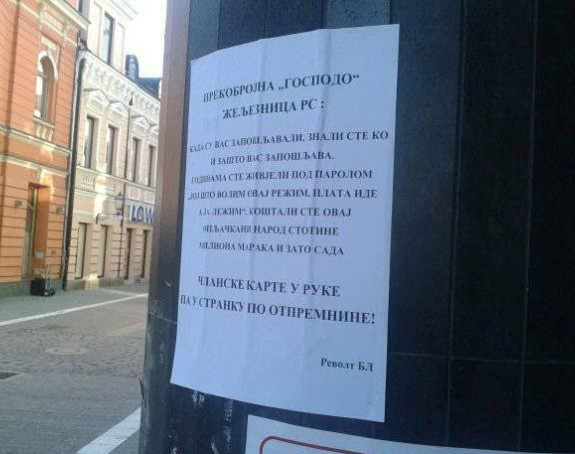 ПРЕКОБРОЈНА „ГОСПОДО“
ЖЕЉЕЗНИЦА РС :
КАДА СУ ВАС ЗАПОШЉАВАЛИ, ЗНАЛИ СТЕ КО
И ЗАШТО ВАС ЗАПОШЉАВА.
ГОДИНАМА СТЕ ЖИВЈЕЛИ ПОД ПАРОЛОМ
„ЈОЈ ШТО ВОЛИМ ОВАЈ РЕЖИМ, ПЛАТА ИДЕ
А ЈА ЛЕЖИМ“. КОШТАЛИ СТЕ ОВАЈ
ОПЉАЧКАНИ НАРОД СТОТИНЕ
МИЛИОНА МАРАКА И ЗАТО САДА
ЧЛАНСКЕ КАРТЕ У РУКЕ
ПА У СТРАНКУ ПО ОТПРЕМНИНЕ!
Револт БЛ